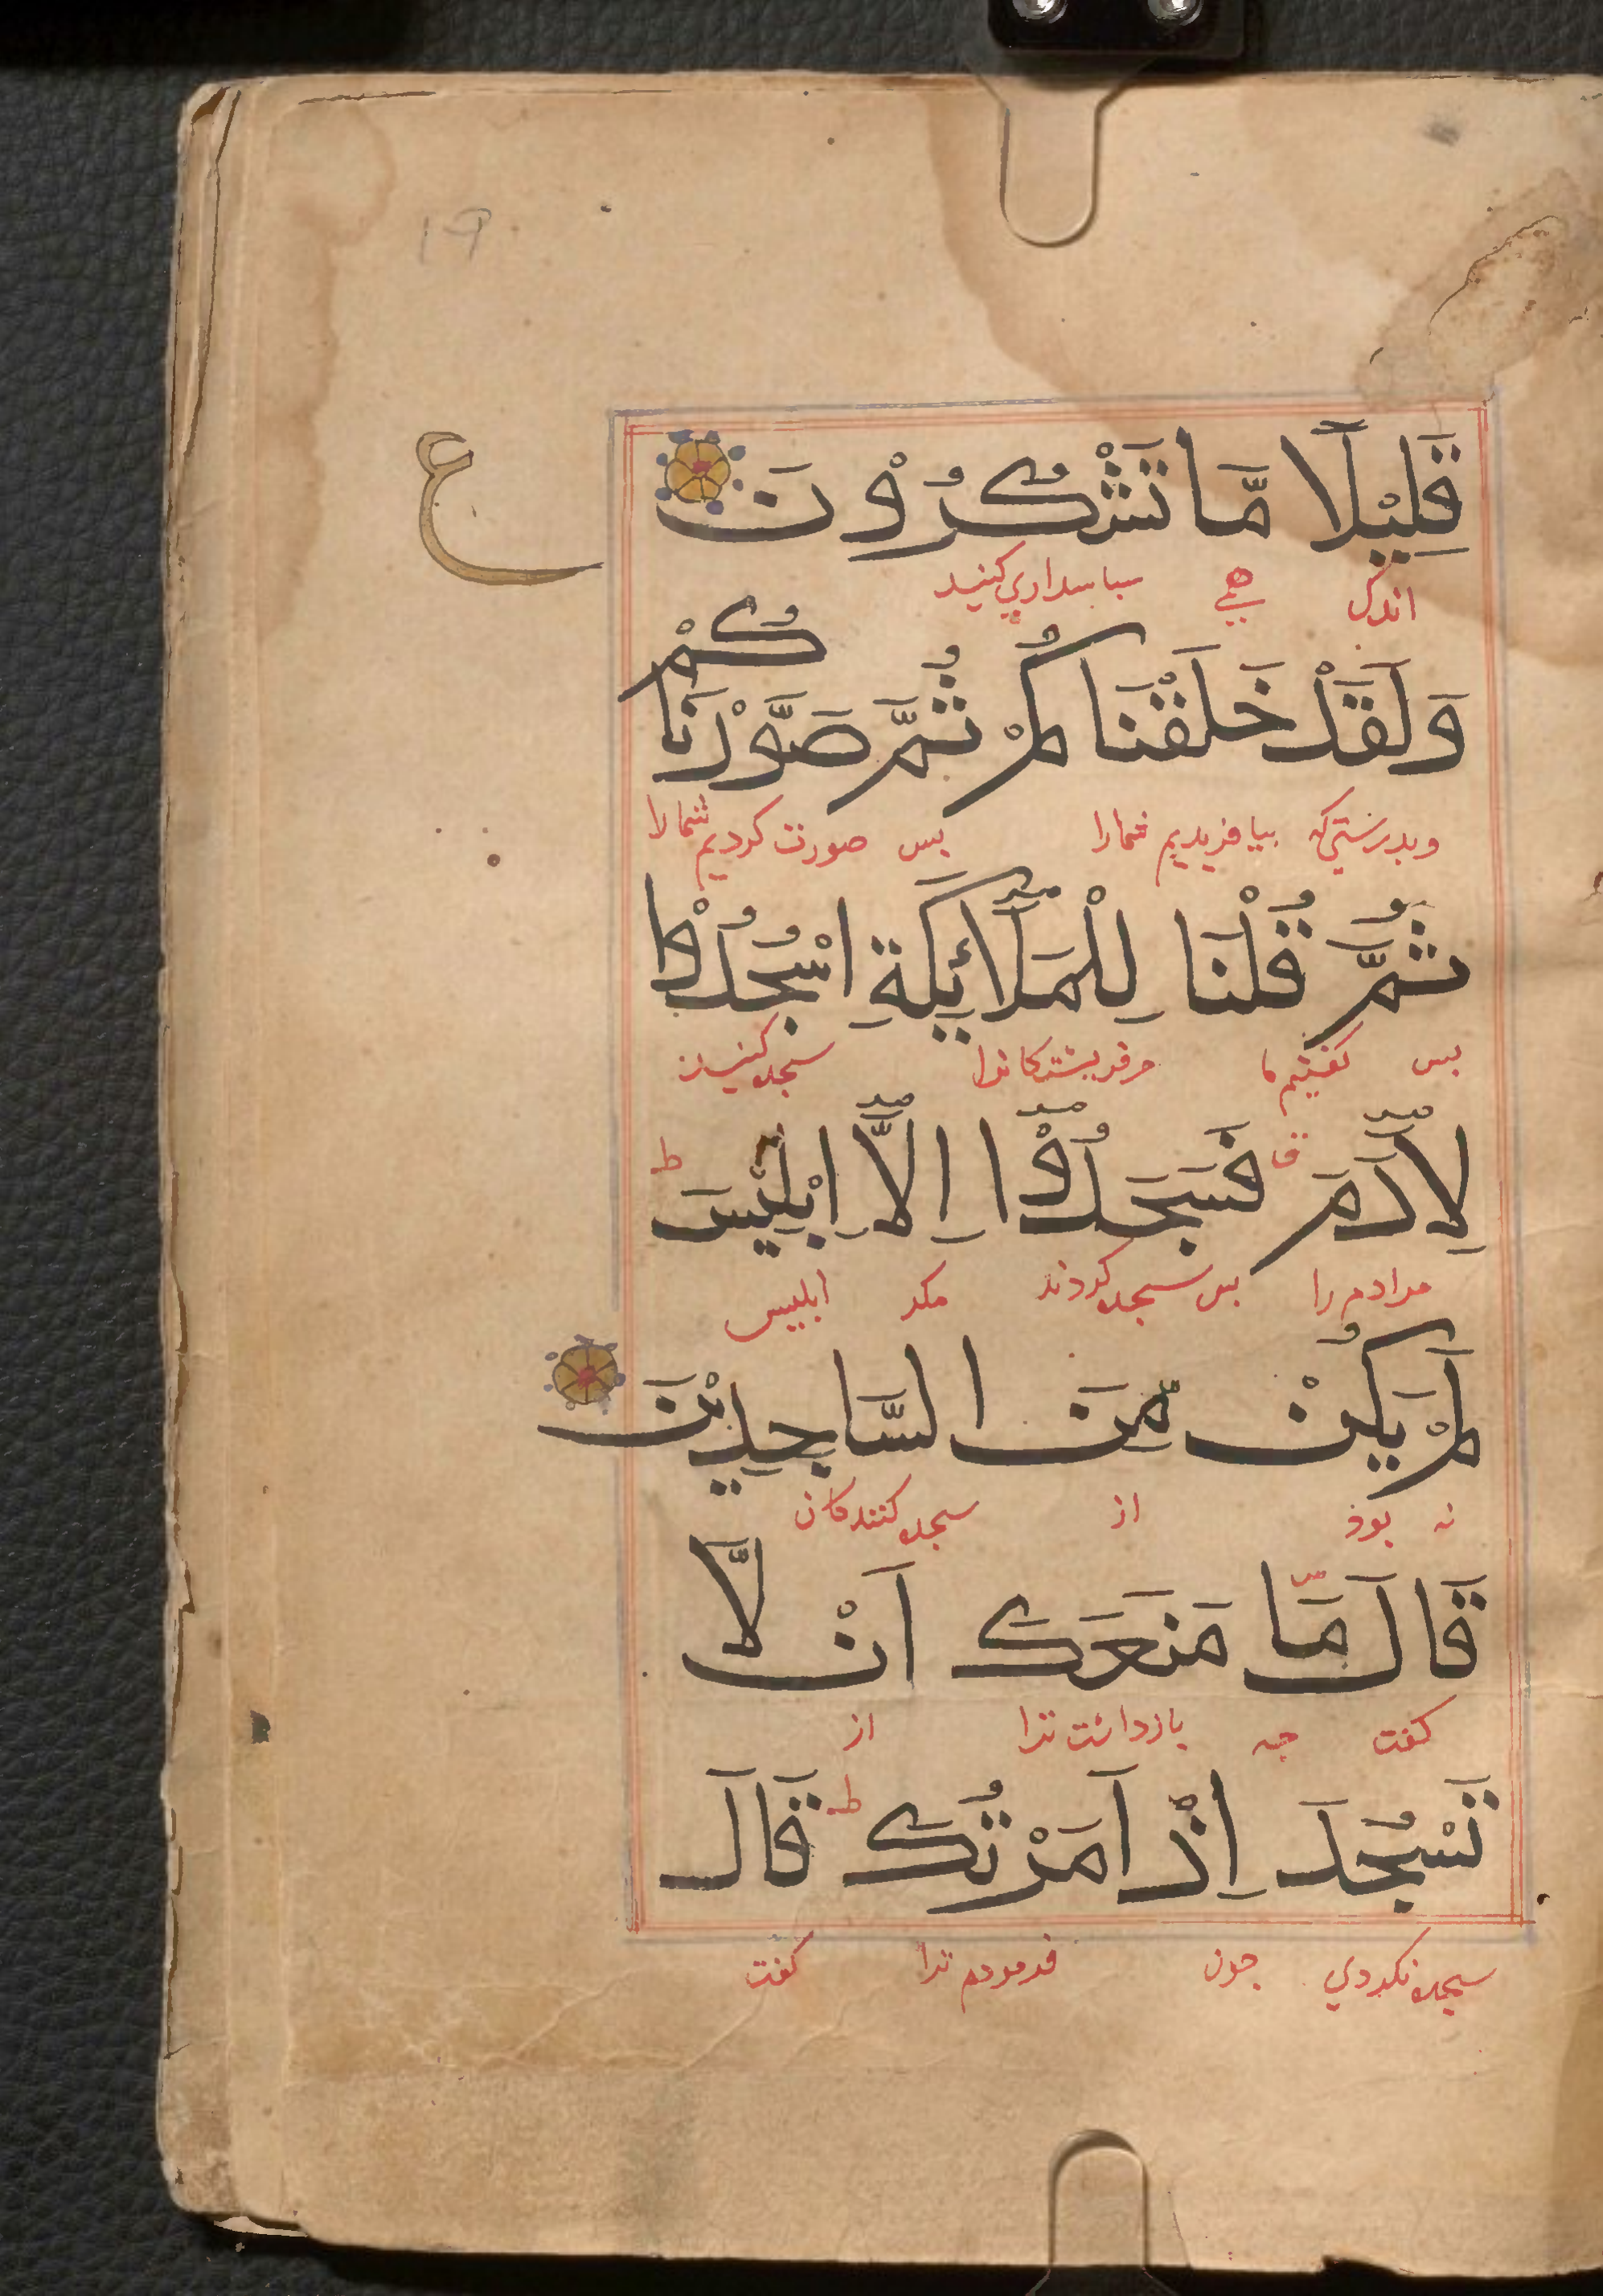 19
قَلِيْلًا مَّا تَشْكُرُوْنَ
ع
اندكى همى سباسدارى كنيد
وَلَقَدْ خَلَقْنَاكُمْ ثُمَّ صَوَّرْنَاكُمْ
وبدرستى كه بيافريديم شمارا بس صورت كرديم شمارا
ثُمَّ قُلْنَا لِلْمَلَآئِكَةِ اسْجُدُوْا
بس كفتيم ما مر فريشتكانرا سجده كنيد
لِاٰدَمَ ق فَسَجَدُوْٓا اِلَّآ اِبْلِيْسَ ط
مر ادم را بس سجده كردند مكر ابليس
لَمْ يَكُنْ مِّنَ السَّاجِدِيْنَ
نه بوذ از سجده كنندكان
قَالَ مَا مَنَعَكَ اَنْ لَّا
كفت جه بازداشت ترا از
تَسْجُدَ اِذْ اَمَرْتُكَ ط قَالَ
سجده نكردي جون فرمودم ترا كفت